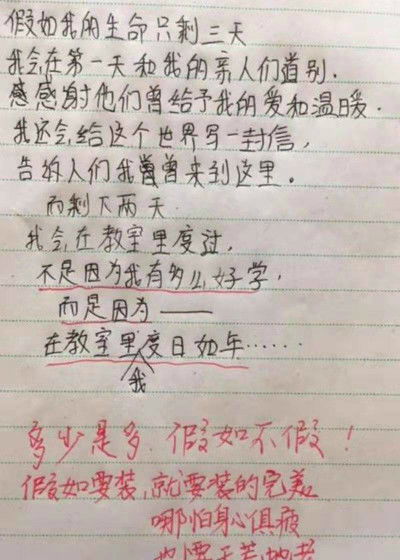 假如我的生命只剩三天
我会在第一天和我的亲人们道别.
感感谢他们曾给予我的爱和温暖.
我还会给这个世界写一封信,
告诉人们我曾曾来到这里。
而剩下两天
我会在教室里度过,
不是因为我有多么好学,
而是因为——
在教室里度日如年……
我
多少是多.假如不假!
假如要装,就要装的完美
哪怕身心俱疲